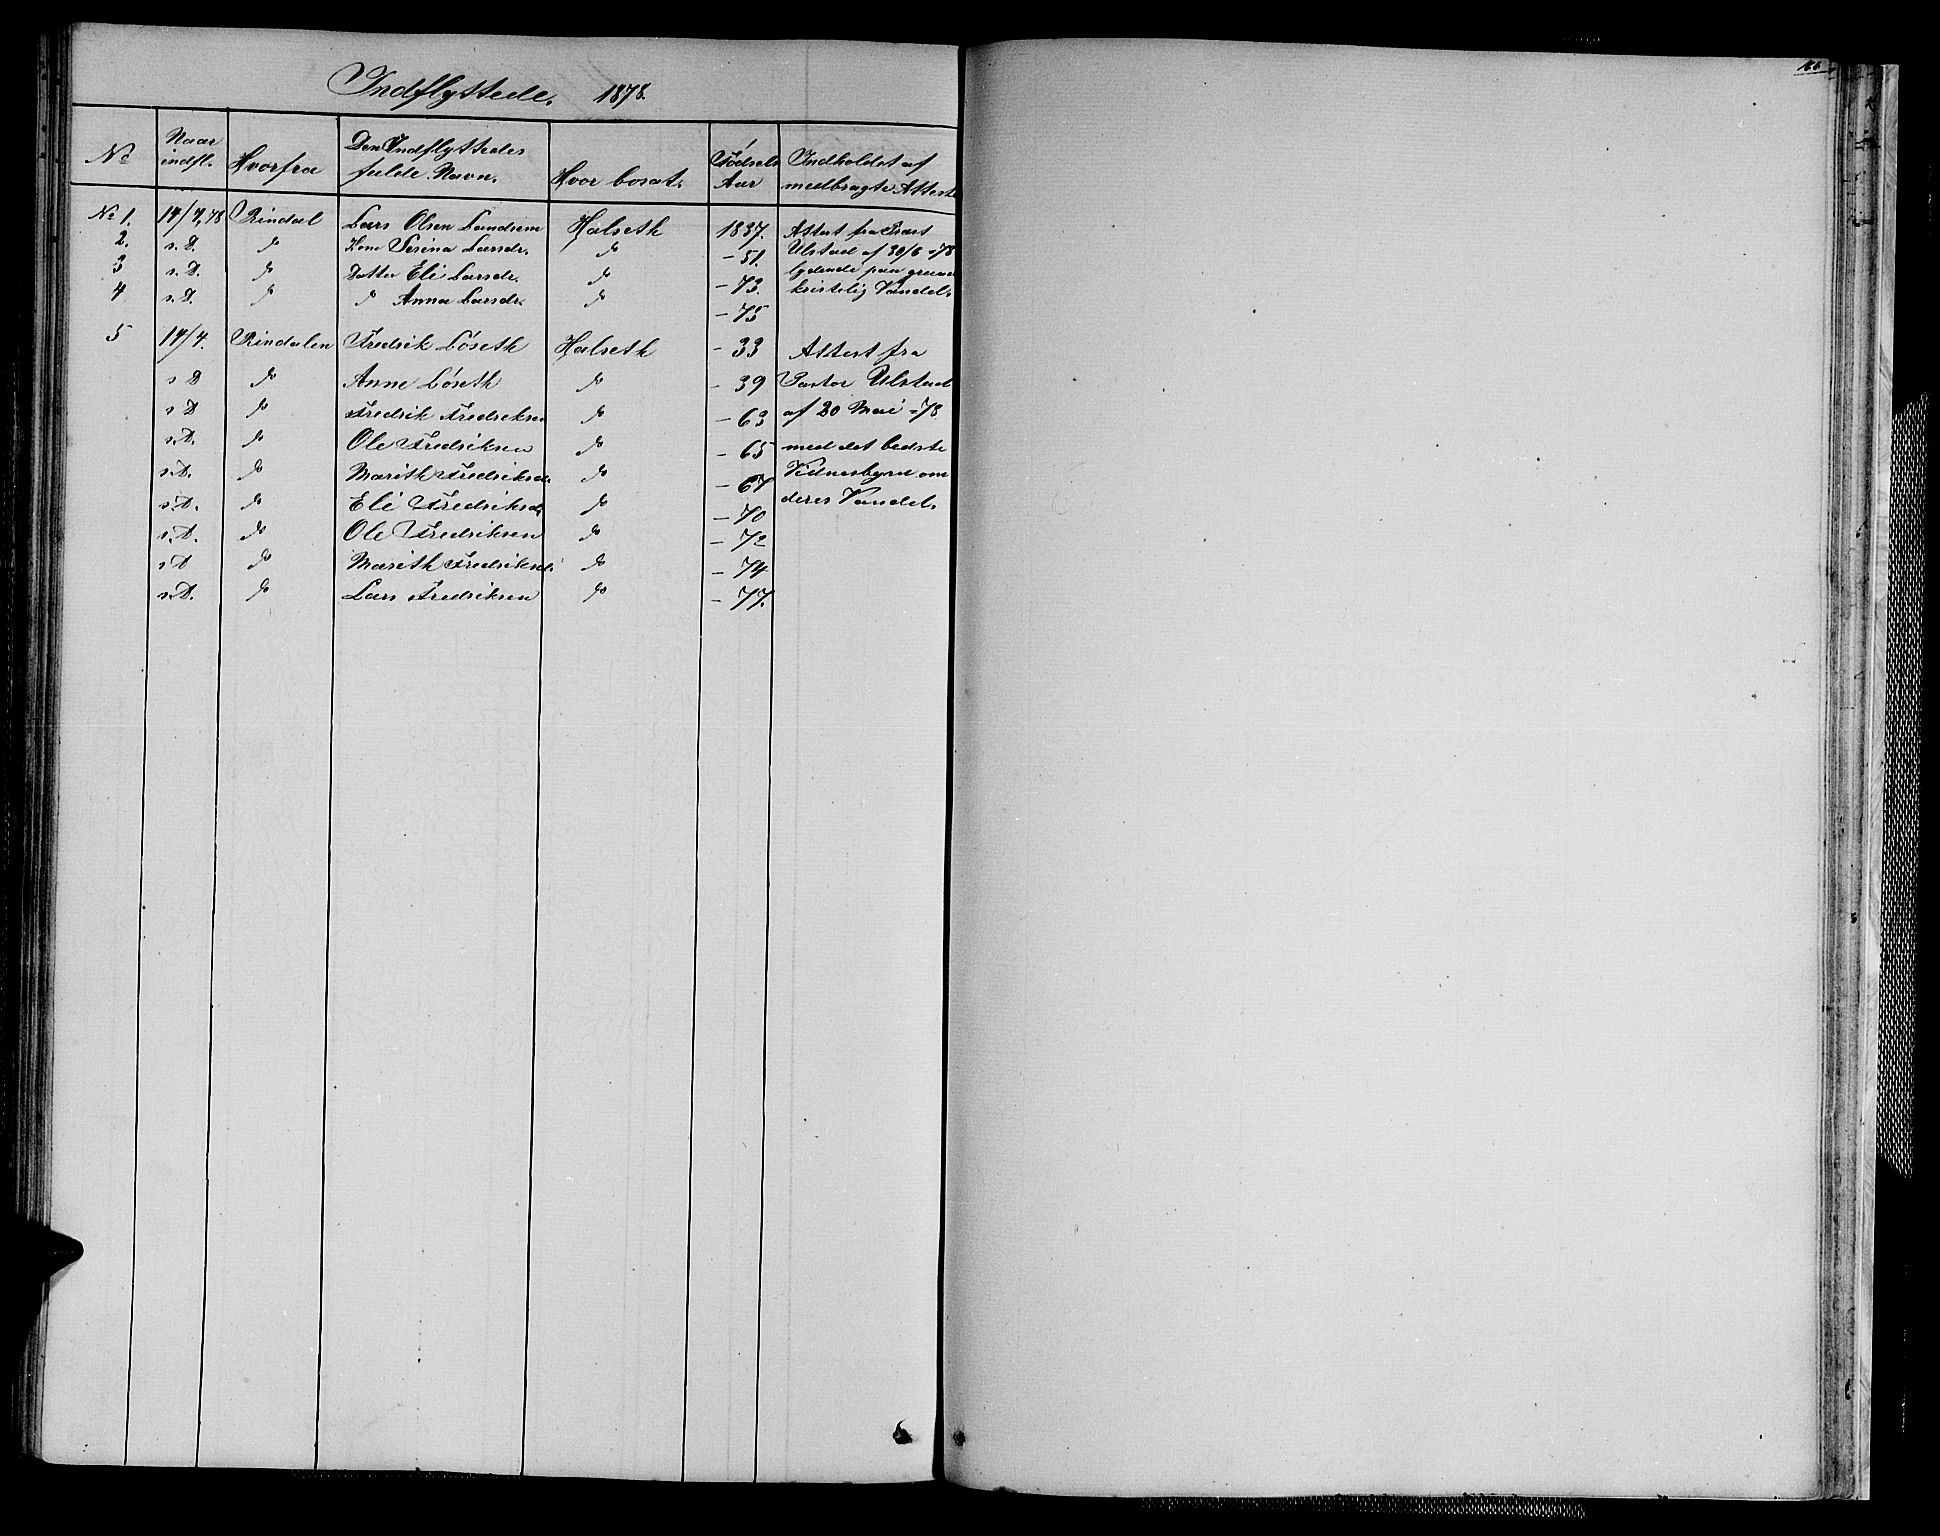 166.
Indflyttede. 1878.
No | Naar indfl. | Hvorfra | Den Indflyttedes fulde Navn. | Hvor bosat. | Fødsels Aar | Indholdet af medbragte Attest
No 1. | 14/7,78 | Rindal | Lars Olsen Landsem | Halseth | 1837. | Attest fra Præst
2. | s. D. | do | Kone Serina Larsdr. | do | -51. | Ulstad af 30/6 -78
3 | s. D. | do | Datter Eli Larsdr. | do | -73. | lydende paa
4 | s. D. | do | do Anna Larsdr. | do | -75 | kristelig Vandel.
5 | 14/7. | Rindalen | Fredrik Løseth | Halseth | -33 | Attest fra
s D | do | Anne Løseth | do | -39 | Pastor Ulstad
s D | do | Fredrik Fredriksen | do | -63 | af 20 Mai -78
s. D. | do | Ole Fredriksen | do | -65 | med det bedste
s. D. | do | Marith Fredriksd. | do | -67 | Vidnesbyrd om
s. D. | do | Eli Fredriksd. | do | -70 | deres Vandel.
s. D. | do | Ole Fredriksen | do | -72
s D | do | Marith Fredriksd. | do | -74
s. D. | do | Lars Fredriksen | do | -77.